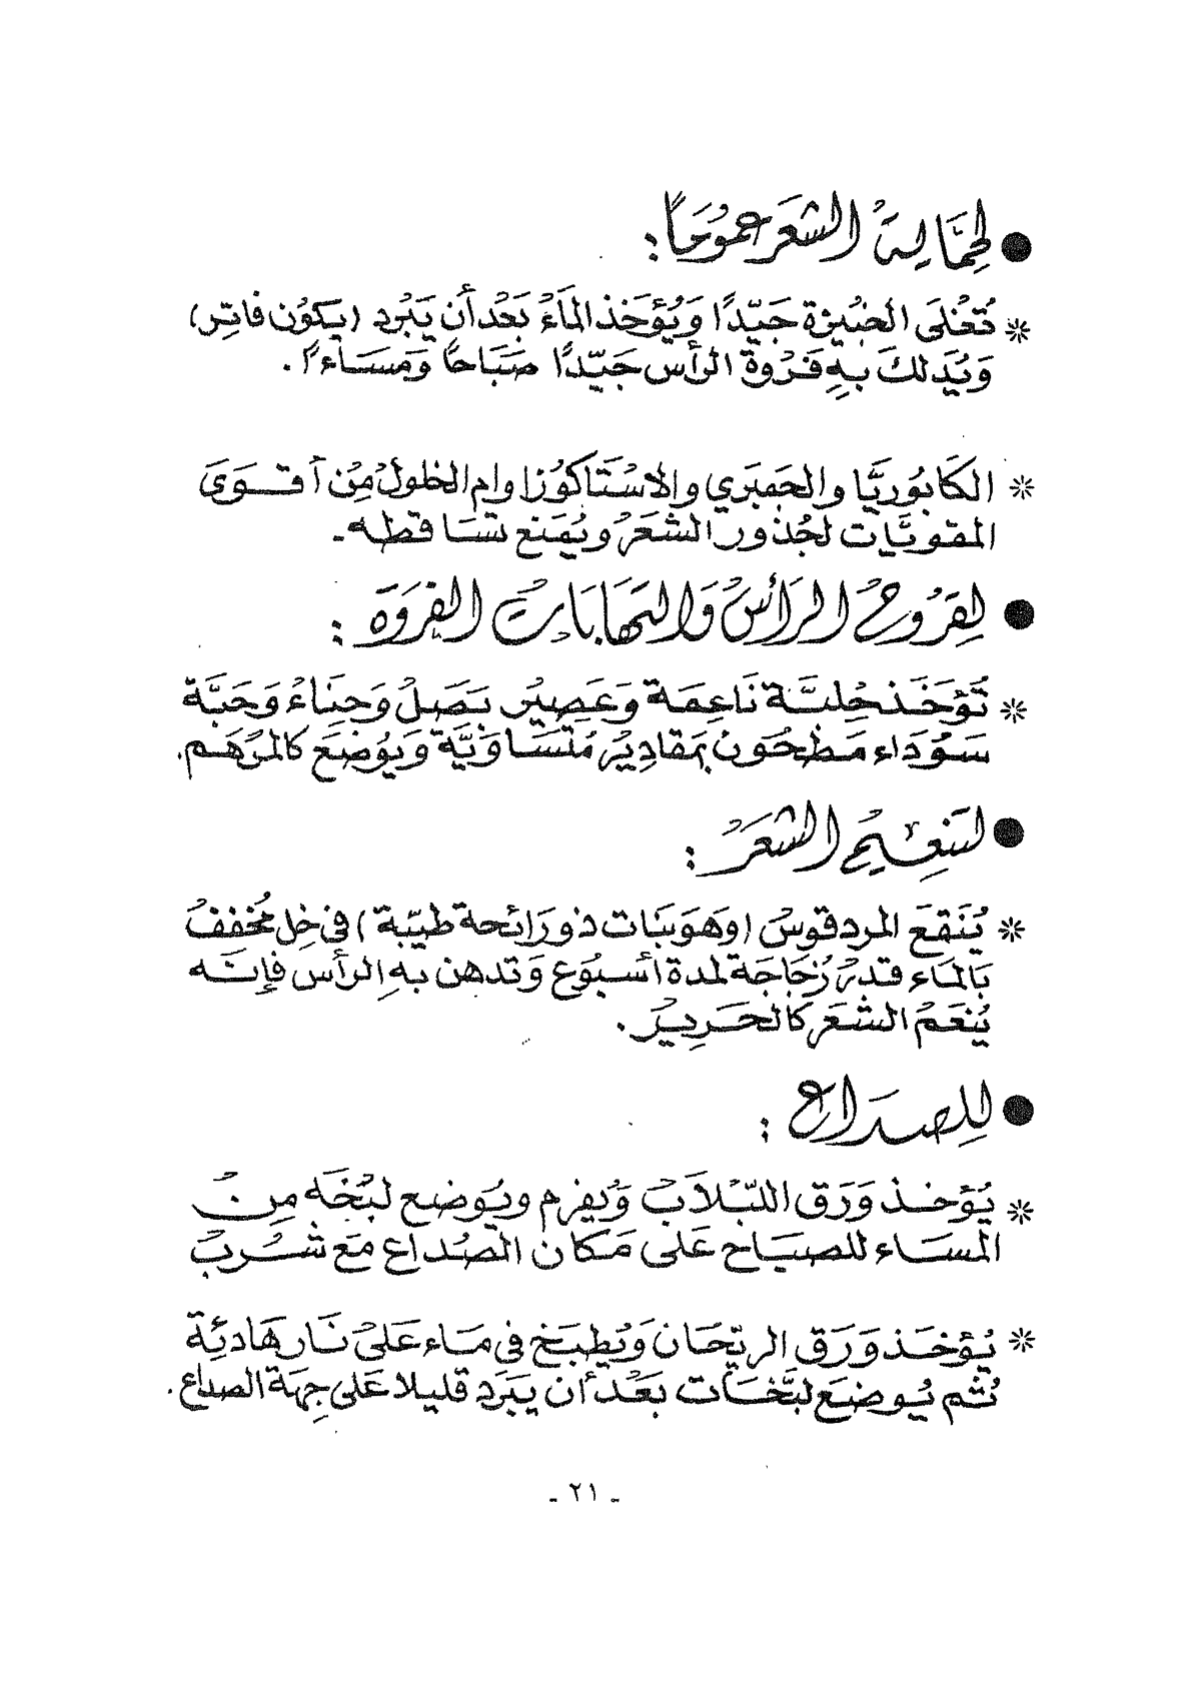 ● لحمالة الشعر عمومًا :
* تُغْلَى الخبيزة جَيّدًا وَيُؤخَذ الماءُ بَعْد أن يَبْرد (يكوُن فاتِر)
وَيُدَلكَ بهِ فَرْوة الرأس جَيّدًا صَبَاحًا وَمسَاءًا .
* الكَابُوريَّا والجَمبَري والاسْتَاكوُزا وام الخلولُ مِن أقوَىَ
المقويَّات لجُذور الشعَرْ ويُمنَع تسَاقطه .
● لِقرُوحُ الرَأسْ وَالتهَابَاتْ الفروَة :
* تُؤخَذ حُلبَّة نَاعِمَة وَعَصِيرْ بَصَلْ وَحِنَاءْ وَحَبَّة
سَوْدَاء مَطحُون بمَقادِيرْ مُتسَاوَيَّة وَيوُضَع كالمرْهَم .
● لتنعِيمُ الشعَرْ :
* يُنَقعَ المردقوسْ (وَهوَ نبَات ذو رَائحة طيّبة) فى خِل مُخففْ
بَالماء قدرْ زُجَاجَة لمدة أسبُوع وَتدهن بهِ الرأس فإنَه
يُنعَمْ الشعَر كالحَرِيرْ .
● للِصدَاع :
* يُؤخذ وَرَق اللبّلاَبْ وَيُفرم ويُوضع لبْخَه مِنْ
المسَاء للصبَاح عَلى مَكان الصُداع مَع شُربْ
* يُؤخَذ وَرَق الريّحَان وَيُطبَخ فى مَاء عَلىْ نَار هَادئِة
ثُم يُوضَع لبَّخَات بَعْد أن يبَرَد قليلا عَلى جِهَة الصداع .
- ٢١ -